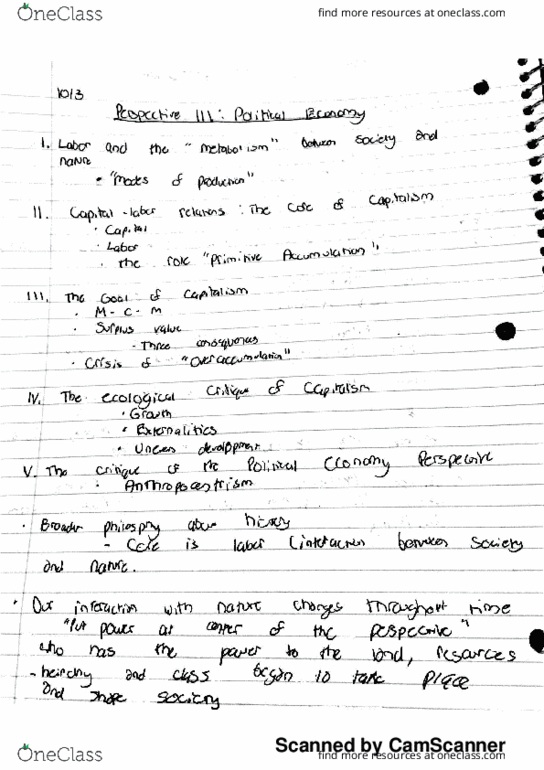 OneClass
find more resources at oneclass.com
10/3
Perspective III: Political Economy
I. Labor and the "metabolism" between society and
nature
"Modes of production"
II. Capital-labor relations: The Core of Capitalism
• Capital
• Labor
• The role "Primitive Accumulation"
III. The Goal of Capitalism
• M-C-M
• Surplus value
• Three consequences
• Crisis of "Overaccumulation"
IV. The ecological critique of Capitalism
• Growth
• Externalities
• Uneven development
V. The critique of the Political Economy Perspective
• Anthropocentrism
• Broader philosphy about history
- Core is labor (interaction between society
and nature.
• Our interaction with nature changes throughout time
"Put power at center of the perspective"
who has the power to the land, resources
- heirchy and class began to take place
and shape society
OneClass
find more resources at oneclass.com
Scanned by CamScanner